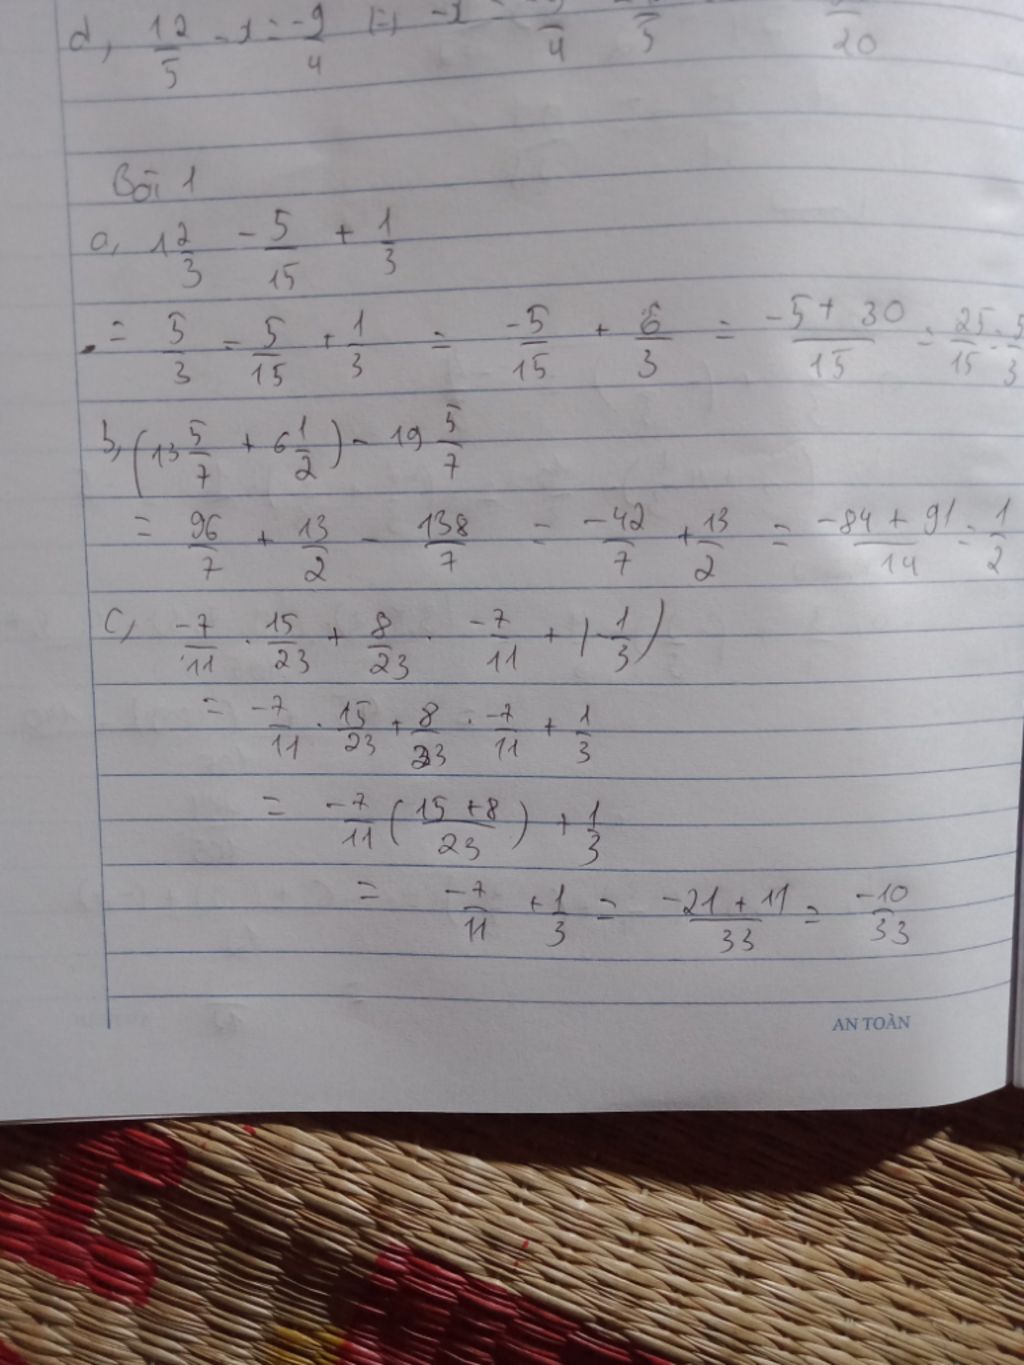 d, 12/5 - x = -9/4 -x = 4 5 20
Bài 1
a, 1 2/3 - 5/15 + 1/3
= 5/3 - 5/15 + 1/3 = -5/15 + 6/3 = (-5 + 30)/15 = 25/15 = 5/3
b, (13 5/7 + 6 1/2) - 19 5/7
= 96/7 + 13/2 - 138/7 = -42/7 + 13/2 = (-84 + 91)/14 = 1/2
c, -7/11 . 15/23 + 8/23 . -7/11 + |-1/3|
= -7/11 . 15/23 + 8/23 . -7/11 + 1/3
= -7/11 ((15 + 8)/23) + 1/3
= -7/11 + 1/3 = (-21 + 11)/33 = -10/33
AN TOÀN